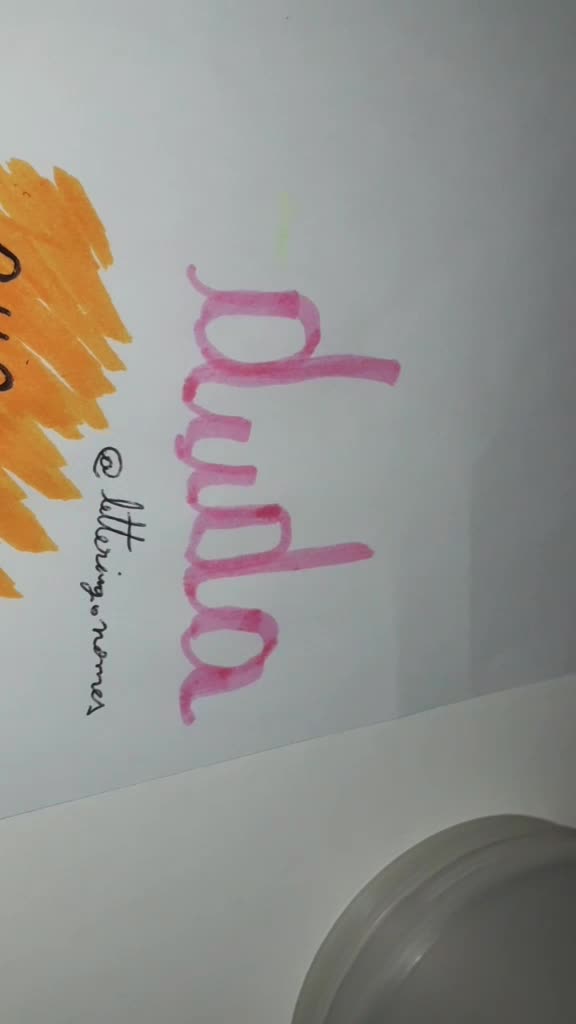 duda
@lettering.nomes